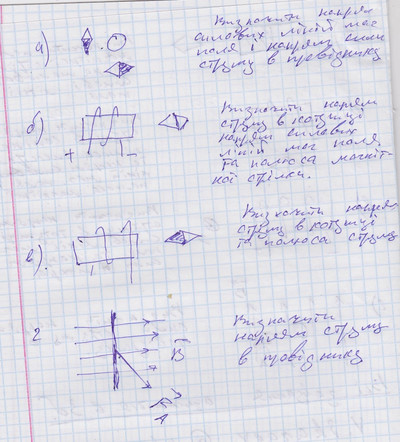 а)
Визначити напрям
силових ліній маг
поля і напрям сили
струму в провіднику
б)
+ -
Визначити напрям
струму в котушці
напрям силових
ліній маг поля
та полюса магніт-
ної стрілки.
в).
Визначити напрям
струму в котушці
та полюса струму
2
B
F
A
Визначити
напрям струму
в провіднику